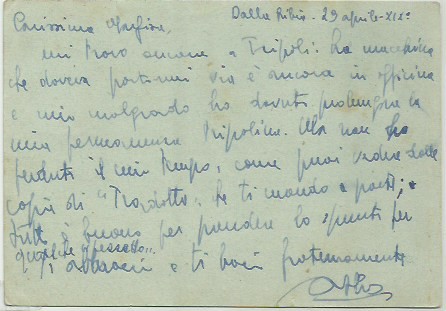 Dalla Libia - 29 aprile - XIX°
Carissimo
mi trovo ancora a Tripoli: la macchina
che doveva portarmi via è ancora in officina
e mio malgrado ho dovuto prolungare la
mia permanenza Tripolina. Ma non ho
perduto il mio tempo, come puoi vedere dalle
copie di " " che ti mando a parte;
tutto è buono per prendere lo spunto per
qualche "pezzetto".
Ti abbracci e ti baci fraternamente